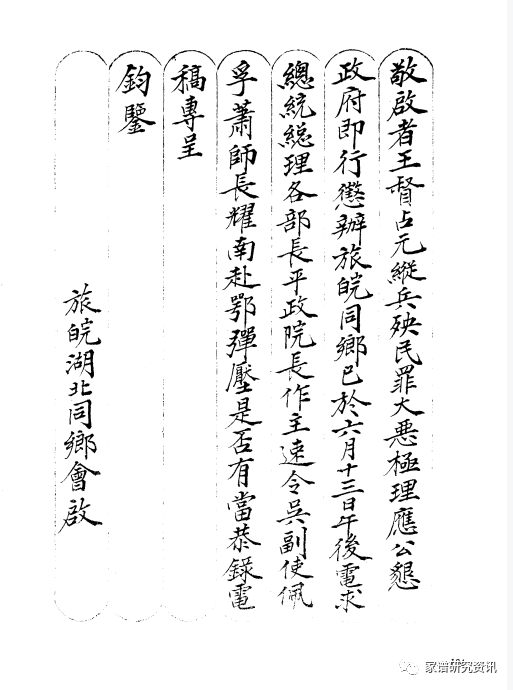 敬啟者王督占元縱兵殃民罪大惡極理應公懇
政府即行懲辦旅皖同鄉已於六月十三日午後電求
總統總理各部長平政院長作主速令吳副使佩
孚蕭師長耀南赴鄂彈壓是否有當恭錄電
稿專呈
鈞鑒
旅皖湖北同鄉會啟
家谱研究资讯